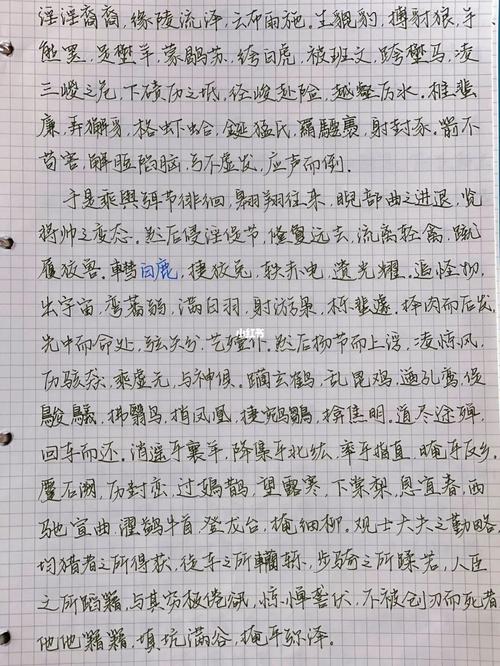 淫淫裔裔，缘陵流泽，云布雨施。生貔豹，搏豺狼，手
熊罴，足壄羊，蒙鹖苏，绔白虎，被班文，跨壄马，凌
三嵕之危，下碛历之坻，径峻赴险，越壑厉水。椎蜚
廉，弄獬豸，格虾蛤，鋋猛氏，羂騕褭，射封豕。箭不
苟害，解脰陷脑，弓不虚发，应声而倒。
于是乘舆弭节徘徊，翱翔往来，睨部曲之进退，览
将帅之变态。然后侵淫促节，儵夐远去，流离轻禽，蹴
履狡兽。轊白鹿，捷狡兔，轶赤电，遗光耀。追怪物，
出宇宙，弯蕃弱，满白羽，射游枭，栎蜚遽。择肉而后发，
先中而命处，弦矢分，艺殪仆。然后扬节而上浮，凌惊风，
历骇猋，乘虚无，与神俱。躏玄鹤，乱昆鸡，遒孔鸾，促
鵔鸃，拂翳鸟，捎凤凰，捷鹓鶵，揜焦明。道尽途殚，
回车而还。消遥乎襄羊，降集乎北纮，率乎直指，晻乎反乡。
蹷石阙，历封峦，过鳷鹊，望露寒，下棠梨，息宜春，西
驰宣曲，濯鹢牛首，登龙台，掩细柳。观士大夫之勤略，
均猎者之所得获，徒车之所轥轹，步骑之所蹂若，人臣
之所蹈籍，与其穷极倦䝙，惊惮詟伏，不被创刃而死者，
他他籍籍，填坑满谷，掩平弥泽。
小红书